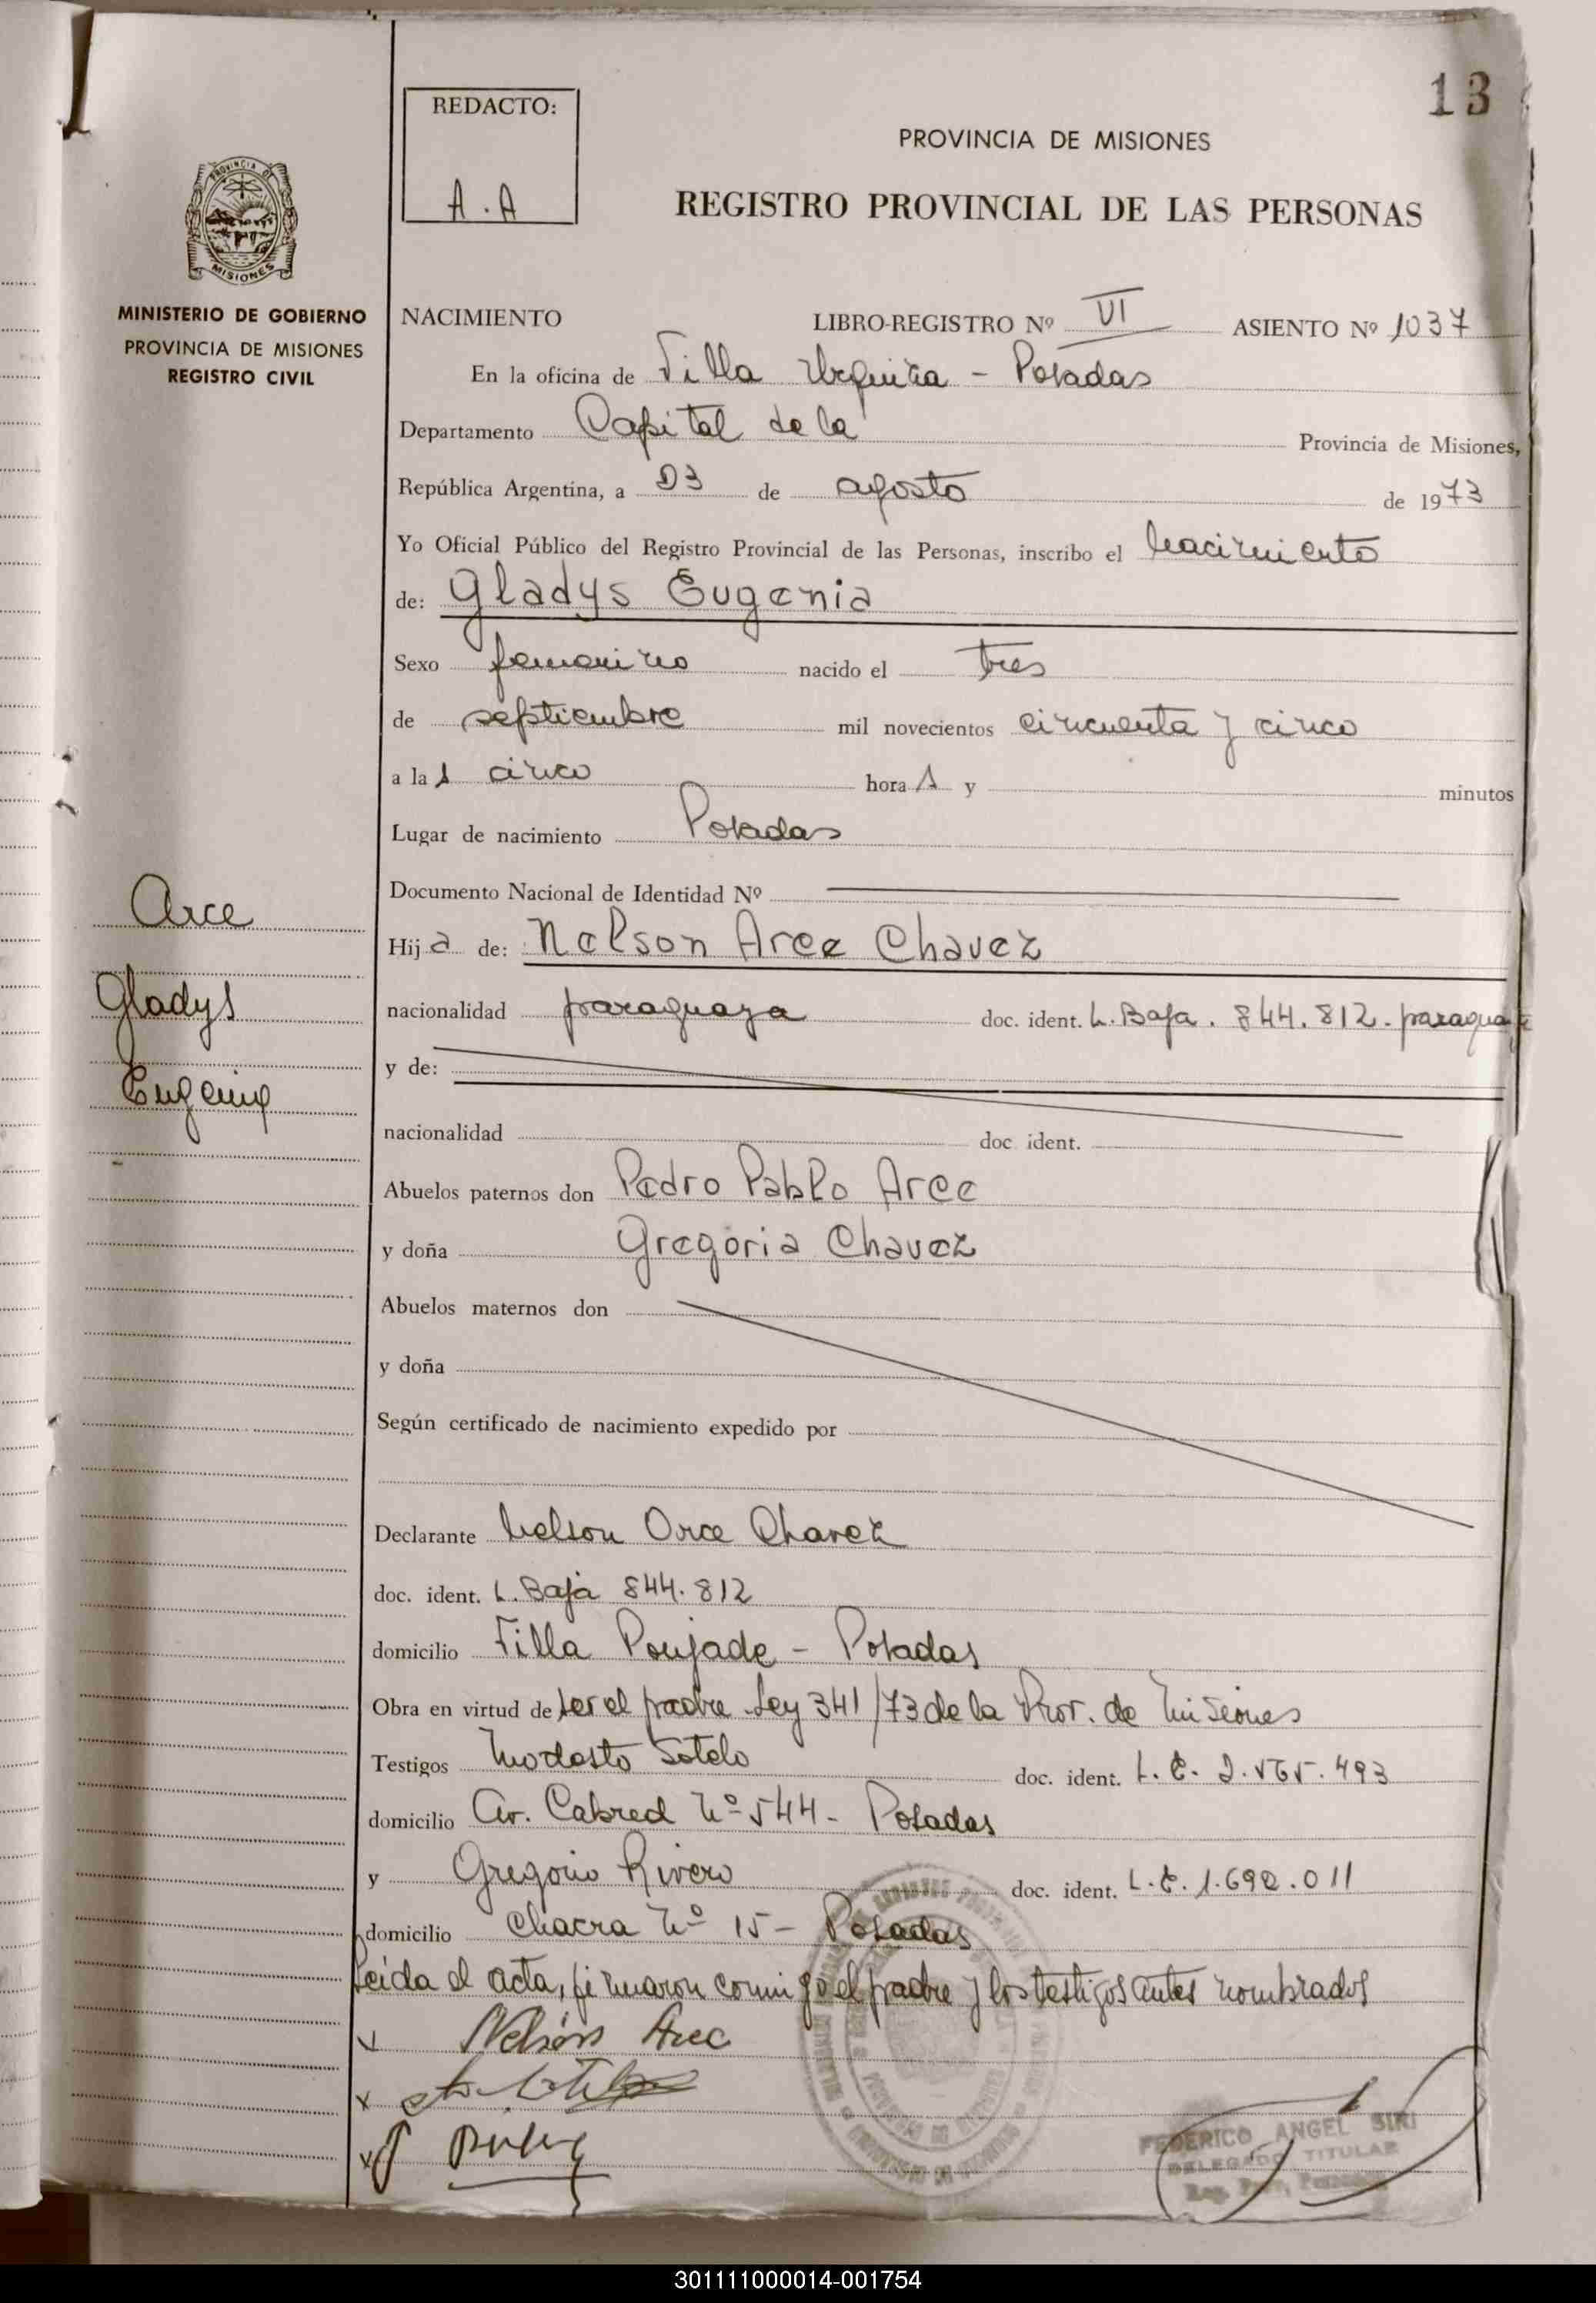 13
REDACTO:
A. A
PROVINCIA DE MISIONES
REGISTRO PROVINCIAL DE LAS PERSONAS
PROVINCIA DE
MISIONES
MINISTERIO DE GOBIERNO
PROVINCIA DE MISIONES
REGISTRO CIVIL
NACIMIENTO LIBRO-REGISTRO Nº VI ASIENTO Nº 1037
En la oficina de Villa Urquiza - Posadas
Departamento Capital de la Provincia de Misiones,
República Argentina, a 03 de agosto de 1973
Yo Oficial Público del Registro Provincial de las Personas, inscribo el nacimiento
de: Gladys Eugenia
Sexo femenino nacido el tres
de septiembre mil novecientos cincuenta y cinco
a la s cinco hora s y minutos
Lugar de nacimiento Posadas
Documento Nacional de Identidad Nº
Arce
Gladys
Eugenia
Hija de: Nelson Arce Chavez
nacionalidad paraguaya doc. ident. L. Baja. 844.812. paraguay
y de:
nacionalidad doc. ident.
Abuelos paternos don Pedro Pablo Arce
y doña Gregoria Chavez
Abuelos maternos don
y doña
Según certificado de nacimiento expedido por
Declarante Nelson Arce Chavez
doc. ident. L. Baja 844.812
domicilio Villa Poujade - Posadas
Obra en virtud de ser el padre Ley 341/73 de la Prov. de Misiones
Testigos Modesto Sotelo doc. ident. L. E. 2.565.493
domicilio Av. Cabred Nº 544 - Posadas
y Gregorio Rivero doc. ident. L. E. 1.692.011
domicilio Chacra Nº 15 - Posadas
Leida el acta, firmaron conmigo el padre y los testigos antes nombrados
Nelson Arce
FEDERICO ANGEL SIRI
DELEGADO TITULAR
301111000014-001754